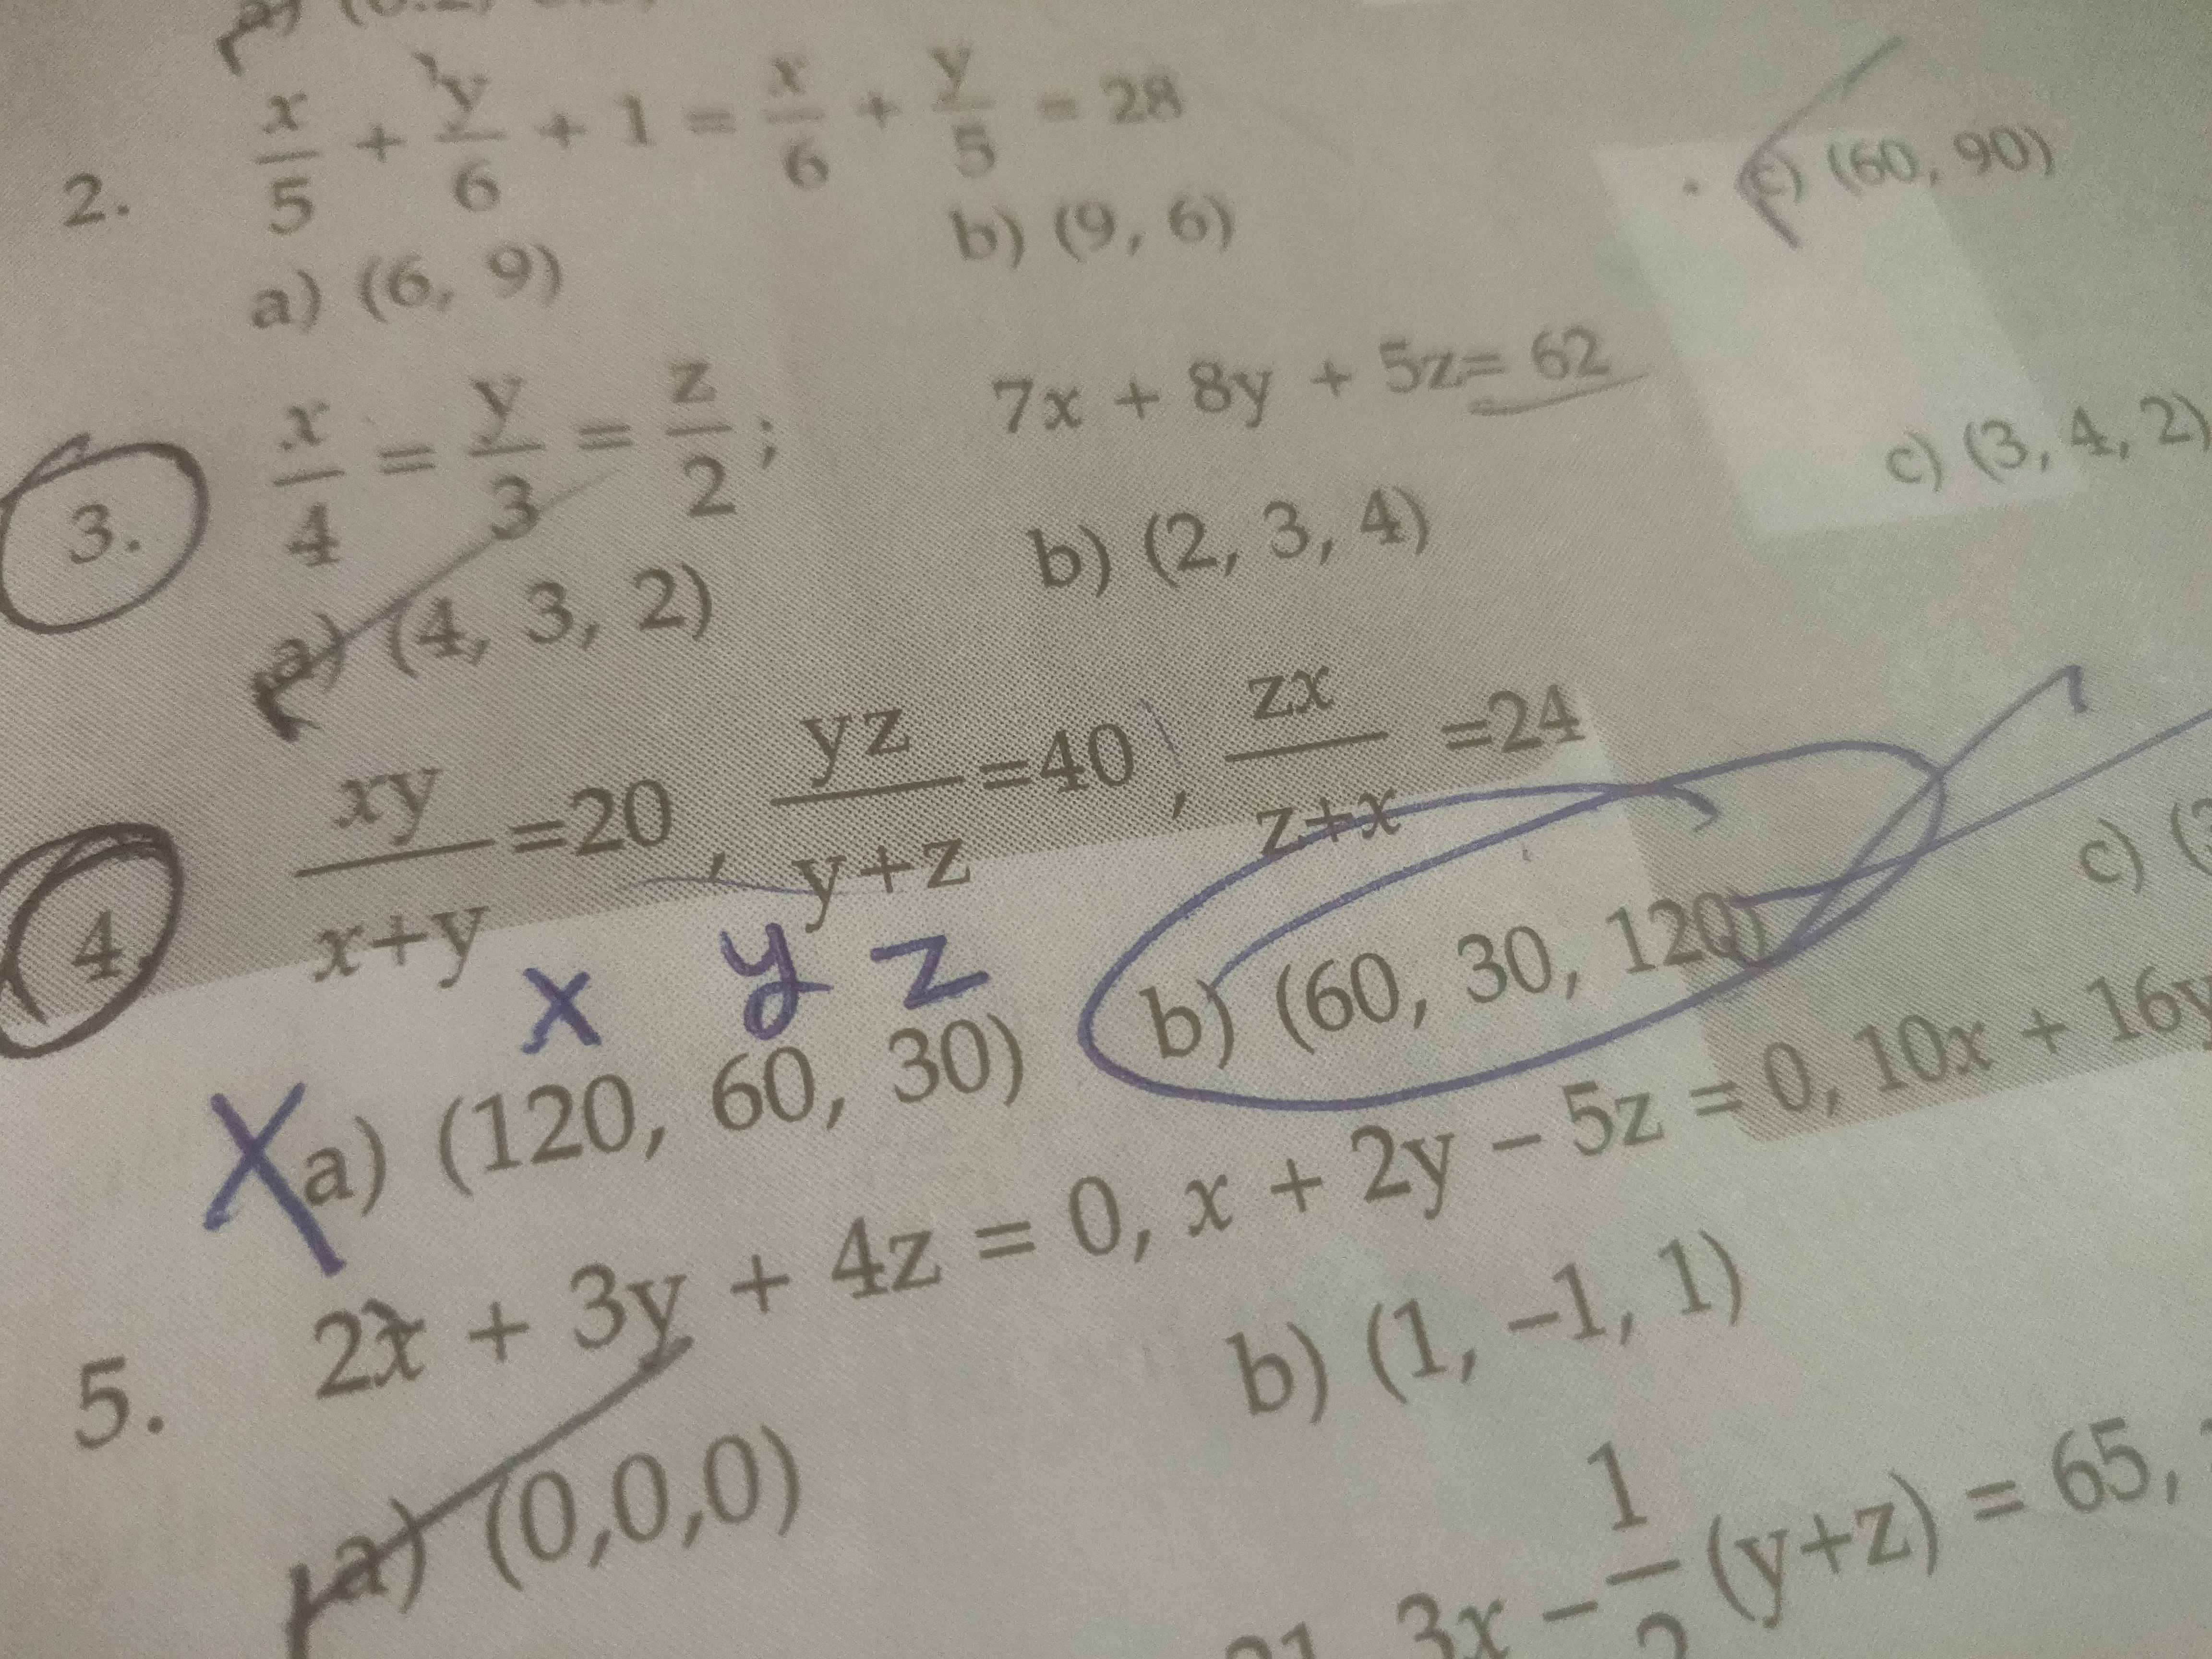 2. x/5 + y/6 + 1 = x/6 + y/5 = 28
a) (6, 9) b) (9, 6) c) (60, 90)
3. x/4 = y/3 = z/2; 7x + 8y + 5z= 62
a) (4, 3, 2) b) (2, 3, 4) c) (3, 4, 2)
4. xy/x+y =20, yz/y+z =40, zx/z+x =24
x y z
a) (120, 60, 30) b) (60, 30, 120) c) (
5. 2x + 3y + 4z = 0, x + 2y – 5z = 0, 10x + 16y
a) (0,0,0) b) (1, –1, 1)
3x – 1/2 (y+z) = 65,